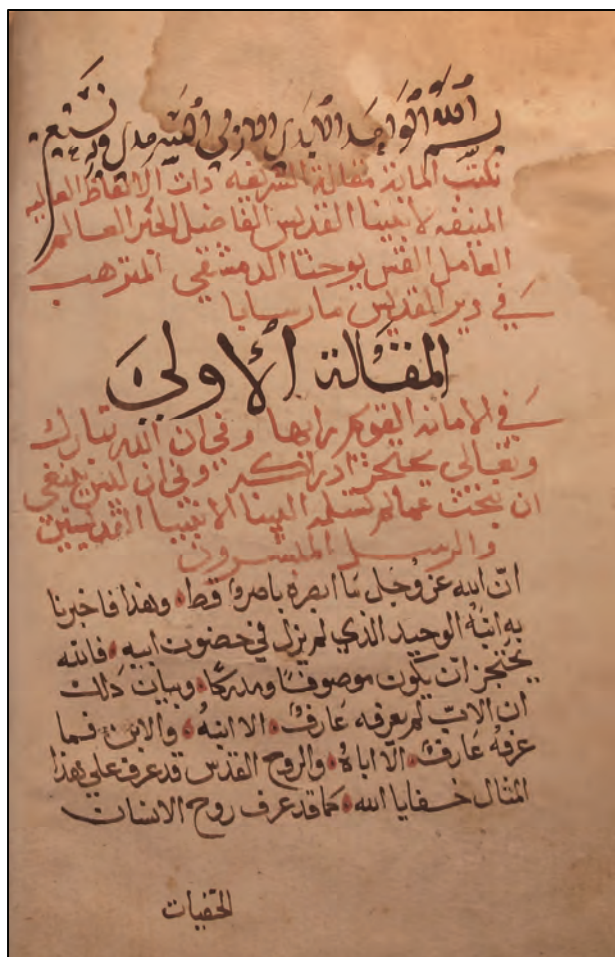 بسم الله الواحد الابدي الازلي السرمدي وبه نستعين
نكتب الماية مقالة الشريفه ذات الالفاظ العاليه
المنيفه لابينا القديس الفاضل الحبر العالم
العامل القس يوحنا الدمشقي المترهب
في دير القديس مار سابا
المقالة الأولي
في الامانه القويم رايها وفي ان الله تبارك
وتعالى يحتجز ادراكه وفي ان ليس ينبغي
ان نبحث عما لم تسلمه الينا الانبيا القديسين
والرسل المبشرون
ان الله عز وجل ما ابصره باصرا قط وهذا فاخبرنا
به ابنهُ الوحيد الذي لم يزل في حضون ابيه فالله
يحتجز ان يكون موصوفًا ومدركًا وبيان ذلك
ان الاب لم يعرفه عارفٌ الا ابنهُ والابن فما
عرفهُ عارفٌ الّا اباهُ والروح القدس قد عرف علي هذا
المثال خفايا الله كما قد عرف روح الانسان
الخفيات